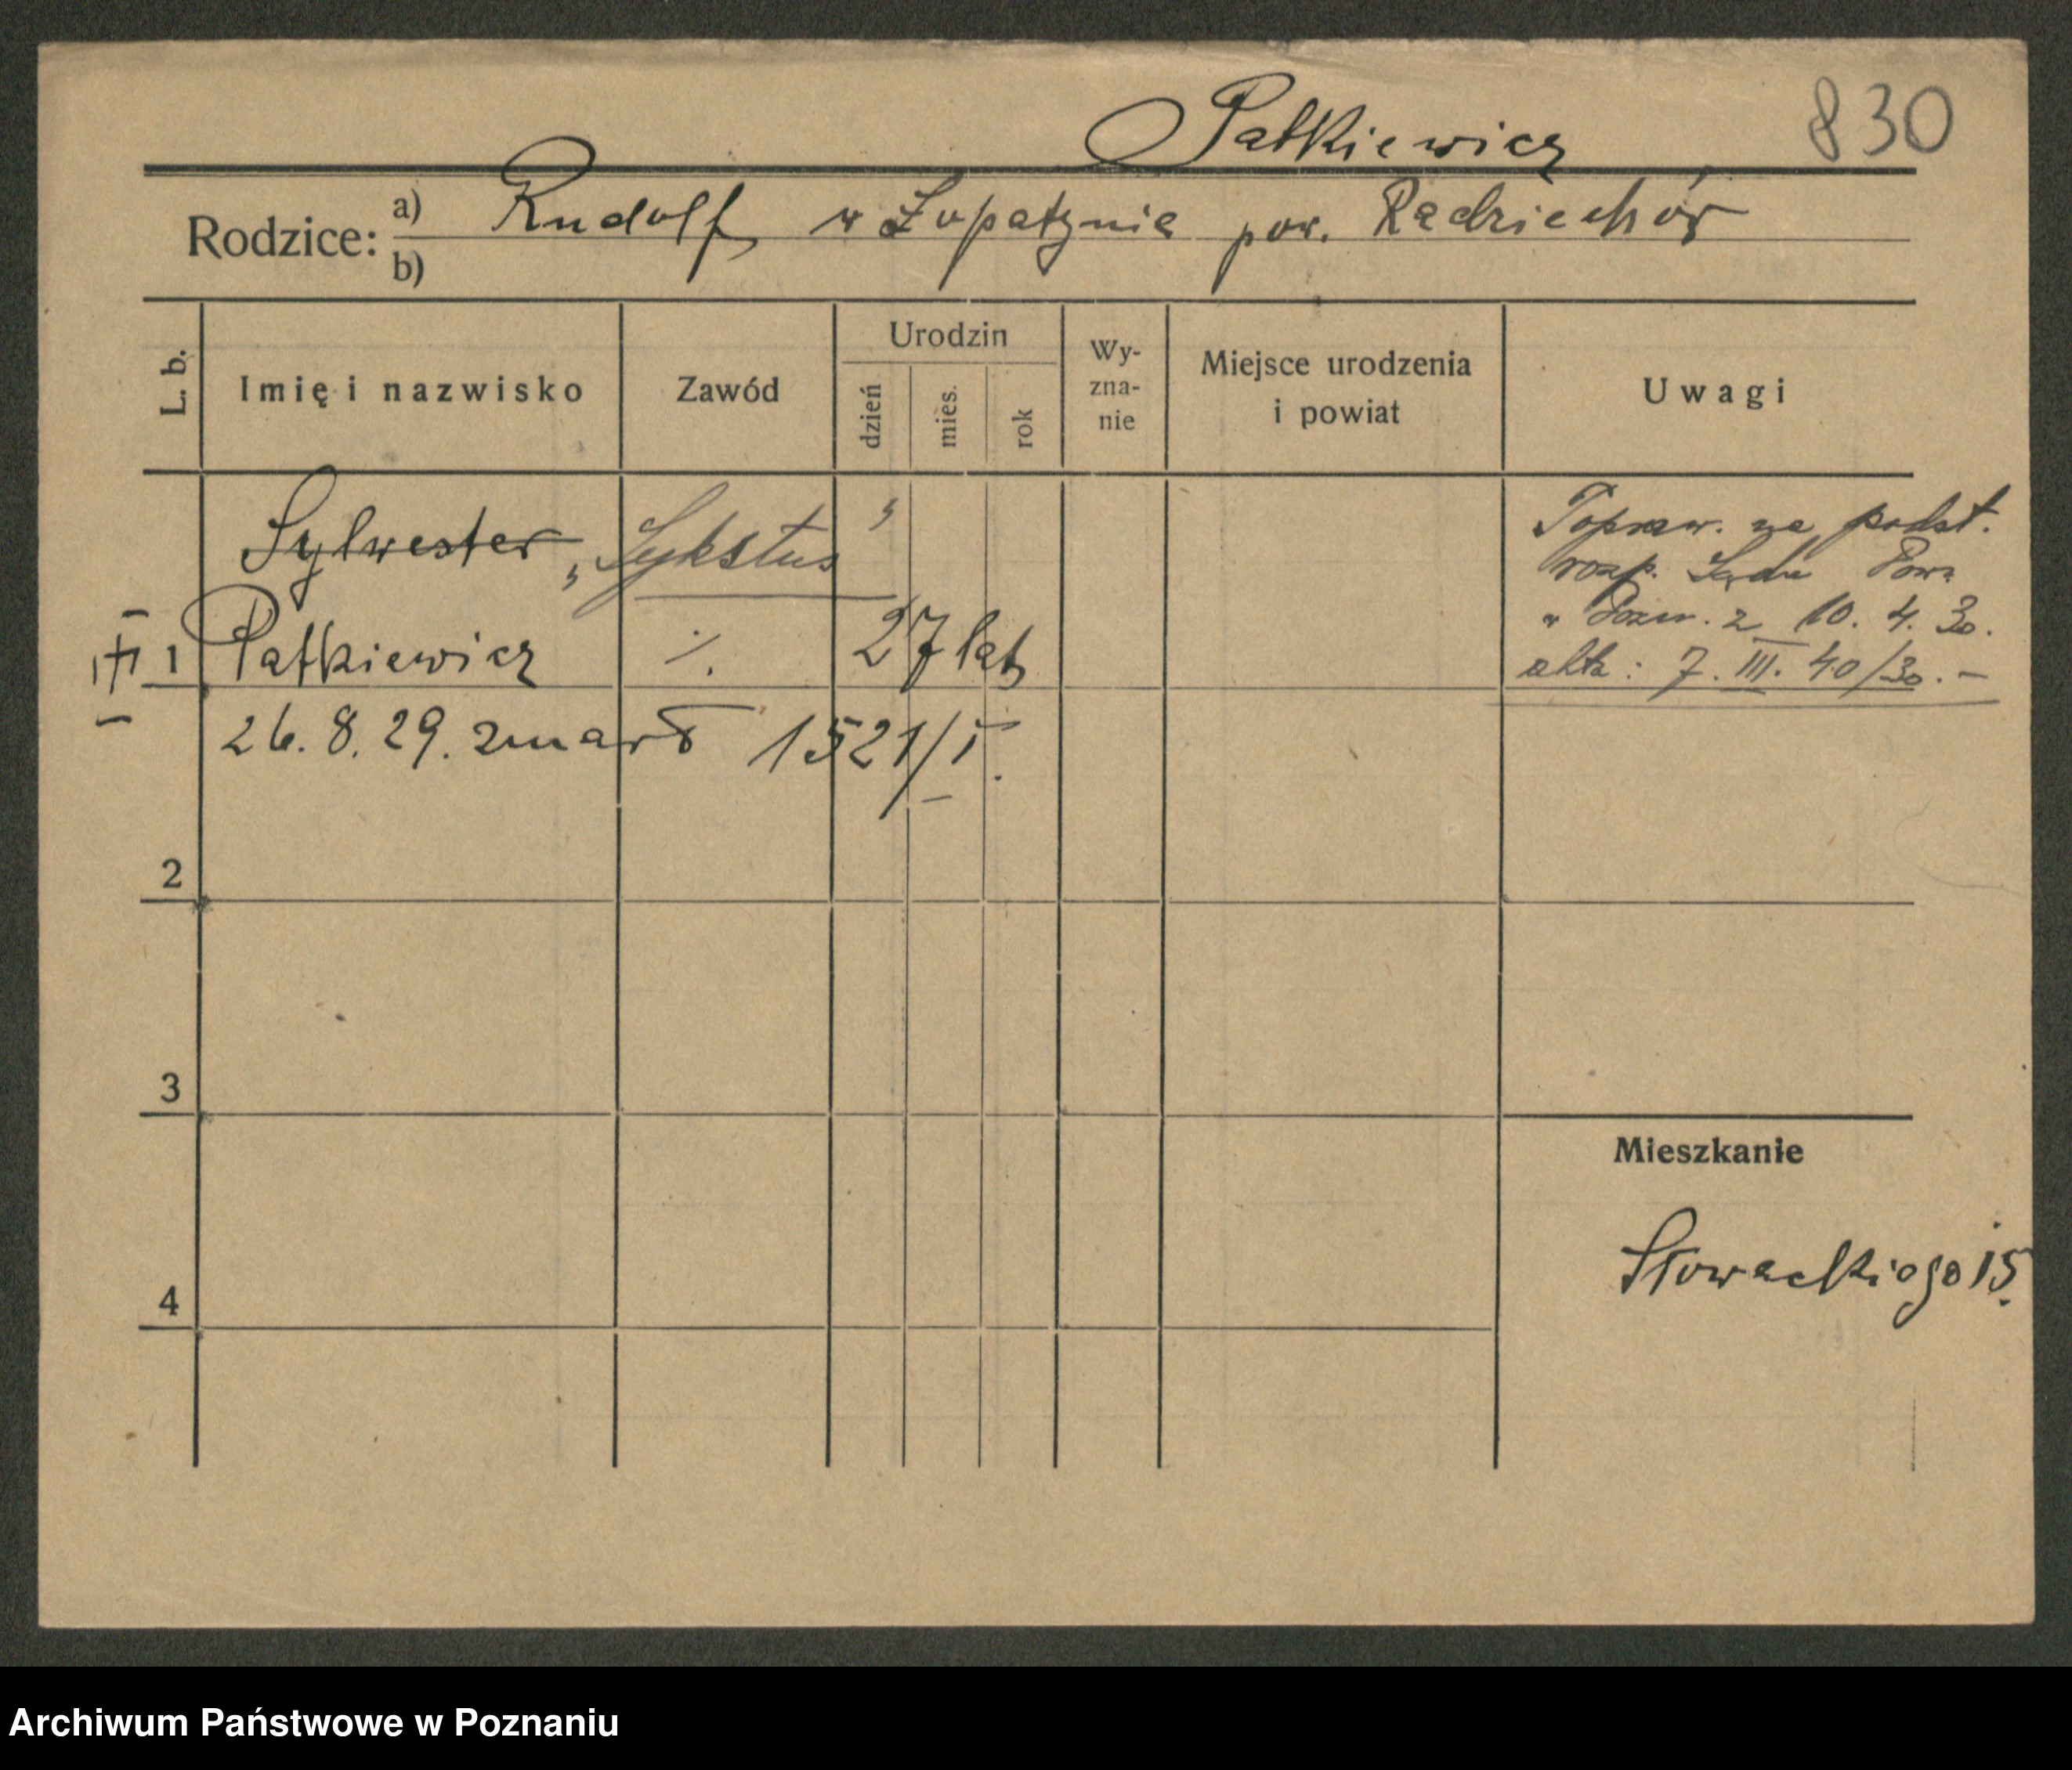 Patkiewicz 830
Rodzice: a) Rudolf w Łopatynie pow. Radziechów
b)
L. b. Imię i nazwisko Zawód Urodzin dzień mies. rok Wy-zna-nie Miejsce urodzenia i powiat Uwagi
Sylwester „Sykstus”
1 Patkiewicz ·/. 27 lat
26. 8. 29. zmarł 1521/I.
Popraw. na podst.
rozp. Sądu Pow.
w Pozn. z 10. 4. 30.
akta: 7. III. 40/30. –
2
3
Mieszkanie
Słowackiego 15.
4
Archiwum Państwowe w Poznaniu